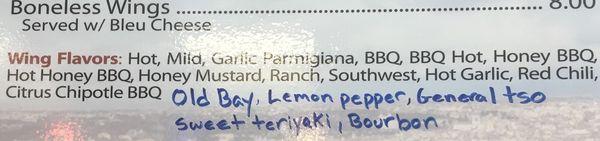 Boneless Wings ........................................................................ 8.00
Served w/ Bleu Cheese
Wing Flavors: Hot, Mild, Garlic Parmigiana, BBQ, BBQ Hot, Honey BBQ,
Hot Honey BBQ, Honey Mustard, Ranch, Southwest, Hot Garlic, Red Chili,
Citrus Chipotle BBQ Old Bay, Lemon pepper, General tso
Sweet teriyaki, Bourbon